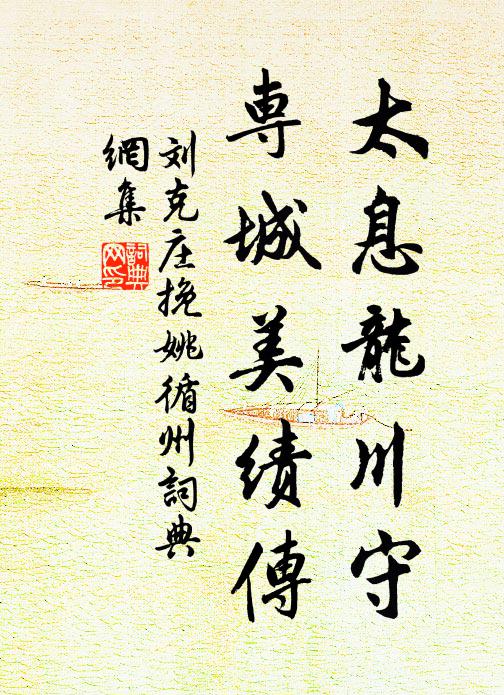 太息龍川守
専城美績傳
刘克庄挽姚循州詞典
網集
詞典網印